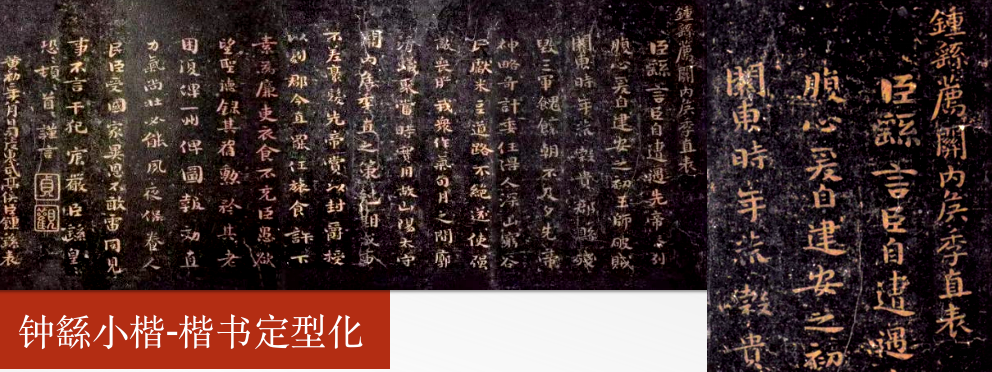 鍾繇薦關內侯季直表
臣繇言臣自遭遇先帝忝列
腹心爰自建安之初王師破賊
關東時年荒穀貴郡縣殘
毀三軍餽饟朝不及夕先帝
神略奇計委任得人深山窮谷
民獻米豆道路不絕遂使強
敵喪膽我衆作氣旬月之間廓
清蟻聚當時實用故山陽太守
關內侯季直之策剋期成事
不差豪髮先帝賞以封爵授
以劇郡今直罷任旅食許下
素為廉吏衣食不充臣愚欲
望聖德錄其舊勳矜其老
困復俾一州俾圖報効直
力氣尚壯必能夙夜保養人
民臣受國家異恩不敢雷同見
事不言干犯宸嚴臣繇皇
恐頓首謹言
貞觀
黃初二年八月日司徒東武亭侯臣鍾繇表
鍾繇薦關內侯季直表
臣繇言臣自遭遇
腹心爰自建安之初
關東時年荒穀貴
钟繇小楷-楷书定型化